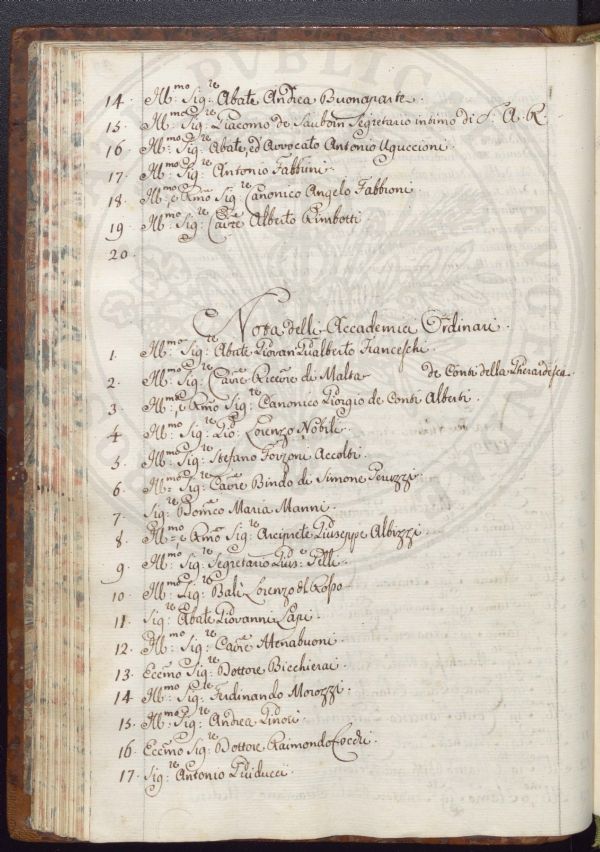 14. Ill:mo Sig:re Abate Andrea Buonaparte.
15. Ill:mo Sig:re Giacomo de Sauboin Segretario intimo di S. A. R.
16. Ill:mo Sig:re Abate, ed Avvocato Antonio Uguccioni.
17. Ill:mo Sig:re Antonio Fabbrini.
18. Ill:mo e Rmo Sig:re Canonico Angelo Fabbroni.
19. Ill:mo Sig:re Cavre Alberto Rimbotti
20.
Nota delli Accademici Ordinari.
1. Ill:mo Sig:re Abate Giovan Gualberto Franceschi.
2. Ill:mo Sig:re Cavre Ricevre di Malta de Conti della Gherardesca.
3. Ill:mo e Rmo Sig:re Canonico Giorgio de Conti Alberti.
4. Ill:mo Sig:re Gio: Lorenzo Nobili.
5. Ill:mo Sig:re Stefano Forzoni Accolti.
6. Ill:mo Sig:re Cavre Bindo di Simone Peruzzi.
7. Sig:re Domco Maria Manni.
8. Ill:mo e Rmo Sig:re Arciprete Giuseppe Albizzi.
9. Ill:mo Sig:re Segretario Gius:e Pelli.
10. Ill:mo Sig:re Balì Lorenzo del Rosso.
11. Sig:re Abate Giovanni Lapi.
12. Ill:mo Sig:re Cavre Atenabuoni.
13. Eccmo Sig:re Dottore Bicchierai.
14. Ill:mo Sig:re Ferdinando Morozzi.
15. Ill:mo Sig:re Andrea Ginori.
16. Eccmo Sig:re Dottore Raimondo Cocchi.
17. Sig:re Antonio Guiducci.